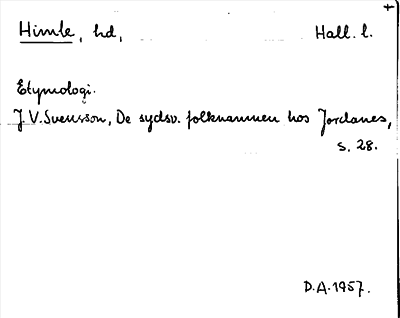 Himle, hd, Hall. l.
Etymologi.
J. V. Svensson, De sydsv. folknamnen hos Jordanes,
s. 28.
D.A. 1957.